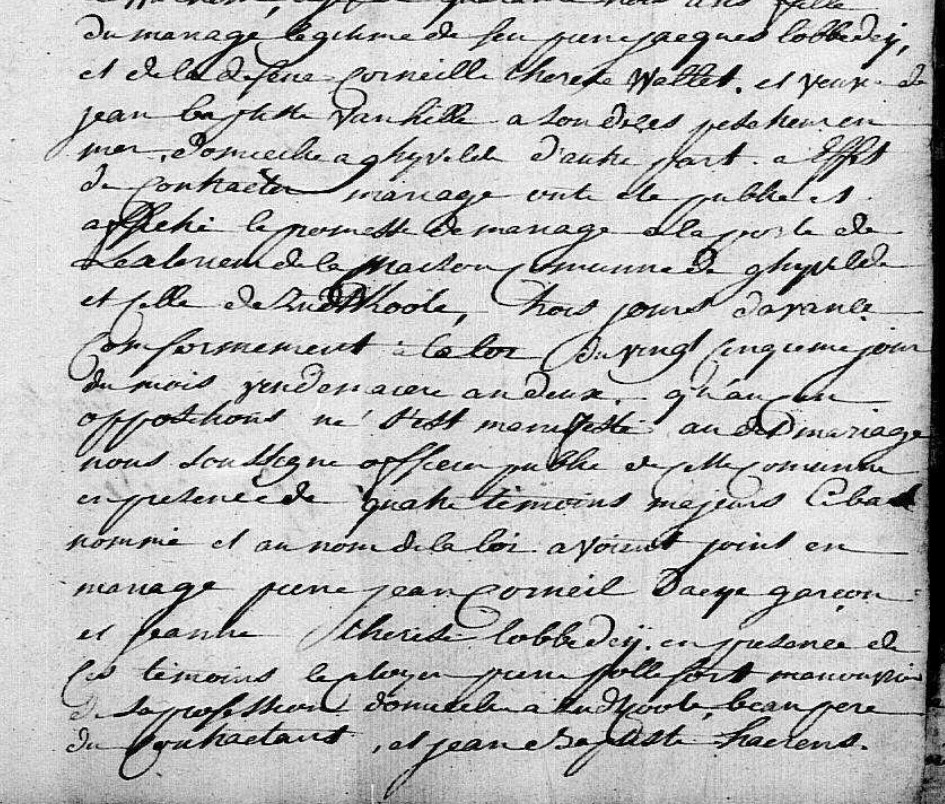 quarante trois ans fille
du mariage legitime de feu pierre jacques lobbedeÿ,
et de la defune Corneille therese Wallet. et veuve de
jean baptiste Vanhille a son deces pecheur en
mer, domicilie a ghyvelde d'autre part. a Effet
de Contracter mariage ont ete publie et
affiche le promesse de mariage a la porte de
Lealerieur de la Maison Comunne de ghyvelde
et celle de Zudthoote, trois jours davance
Conformement a la loi du vingt cinquieme jour
du mois vendemiaere an deux. qu'aucun
oppositions ne s'est manifesté au dit mariage
nous soussigne officier publie de cette Comunne
en presence de quatre temoins majeurs Cibas
nommé et au nom de la loi avoient joint en
mariage pierre jean Corneil Daeye garçon
et jeanne therese lobbedeÿ. en presence de
ces temoins le citoyen pierre follefort manouvrier
de sa profession domicilie a Zudthoote, beaupere
du Contractant, et jean Baptiste haerens.